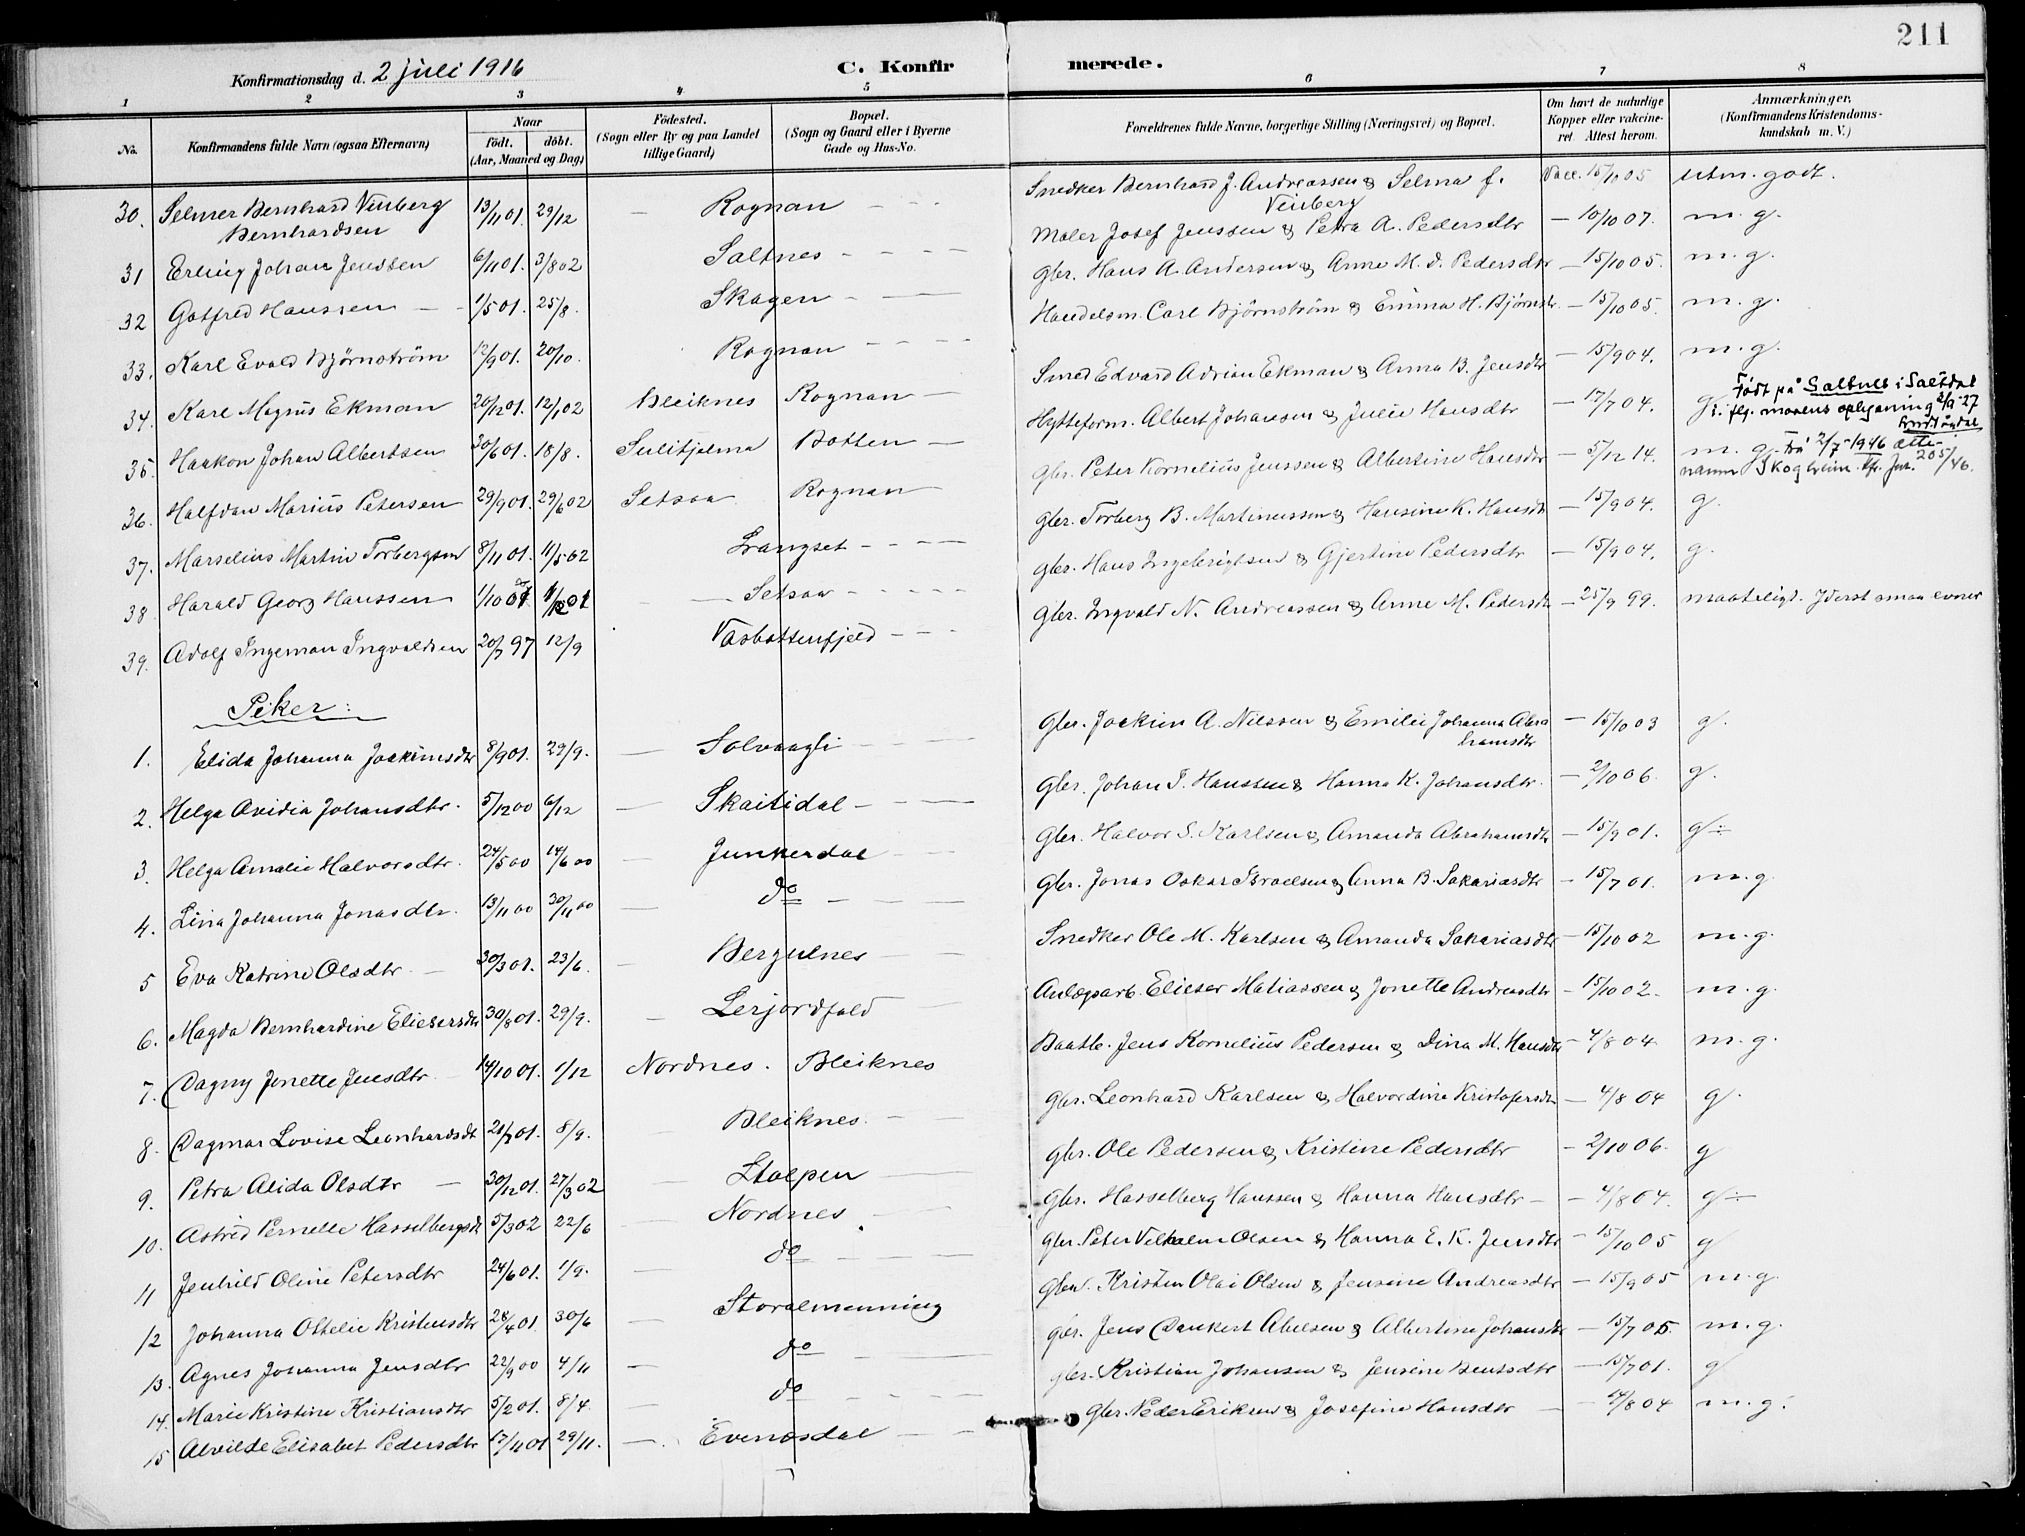 211
Konfirmationsdag d. 2 juli 1916 C. Konfirmerede.
1 2 3 4 5 6 7 8
No. Konfirmandens fulde Navn (ogsaa Efternavn) Naar født. døbt. (Aar, Maaned og Dag) Fødested. (Sogn eller By og paa Landet tillige Gaard) Bopæl. (Sogn og Gaard eller i Byerne Gade og Hus-No. Forældrenes fulde Navne, borgerlige Stilling (Næringsvei) og Bopæl. Om havt de naturlige Kopper eller vakcineret. Attest herom. Anmærkninger. (Konfirmandens Kristendomskundskab m. V.)
30. Selmer Bernhard Vinberg Bernhardsen 13/11 01. 29/12 — Rognan - - - Snedker Bernhard J. Andreassen & Selma f. Vinberg Vacc. 15/10 05 utm. godt.
31 Erling Johan Jenssen 6/11 01. 3/8 02 Saltnes - - - Maler Josef Jenssen & Petra A. Pedersdtr — 10/10 07. m. g.
32 Gotfred Hanssen — 1/5 01. 25/8. Skagen - — Gbr. Hans A. Andersen & Anne M. d. Pedersdtr — 15/10 05. m. g.
33. Karl Evald Bjørnstrøm 12/9 01. 20/10. Rognan - - - Handelsm. Carl Bjørnstrøm & Emma H. Bjørnstr. — 15/10 05. m. g.
34. Karl Magnus Ekman 20/12 01. 12/1 02 Bleiknes Rognan — Smed Edvard Adrian Ekman & Anna B. Jensdtr — 15/9 04. m. g.
35. Haakon Johan Albertsen 30/6 01. 18/8. Sulitjelma Botten — Hytteform. Albert Johansen & Julie Hansdtr — 17/7 04. g. Født på Saltnes i Saltdal i. flg. morens oplysning 2/9-27
36. Halfdan Marius Petersen 29/9 01. 29/6 02 Setsaa Rognan — Gbr. Peter Kornelius Jenssen & Albertine Hansdtr — 5/12 14. m. g. Frå 2/7-1946 ættenamn Skogheim. Kfr. Jnr. 205/46.
37. Marselius Martin Torbergsen 8/11 01. 11/5-02 Langset - - - Gbr. Torberg B. Martinussen & Hansine K. Hansdtr — 15/9 04. g.
38 Harald Georg Hanssen 1/10 01 1/12 01 — Setsaa - - - Gbr. Hans Ingebrigtsen & Gjertine Pedersdtr — 15/9 04. g.
39. Adolf Ingeman Ingvaldsen 20/7 97 12/9 Vasbottenfjeld - - - Gbr. Ingvald N. Andreassen & Anne M. Pedersdtr — 25/9 99. maateligt. Yderst smaa evner
Piker:
1. Elida Johanna Joakimsdtr 8/9 01. 29/9. — Solvaagli - - - Gbr. Joakim A. Nilssen & Emilie Johanna Abrahamsdtr — 15/10 03 g.
2. Helga Ovidia Johansdtr. 5/12 00 6/12 — Skaitidal - - - Gbr. Johan T. Hanssen & Hanna K. Johansdtr. — 2/10 06. g.
3. Helga Amalie Halvorsdtr. 24/5 00 14/6 00 — Junkerdal — Gbr. Halvor S. Karlsen & Amanda Abrahamsdtr — 15/9 01. g ÷
4. Lina Johanna Jonasdtr. 13/11 00 30/11 00 — do — Gbr. Jonas Oskar Israelsen & Anna B. Sakariasdtr — 15/7 01. m. g.
5 Eva Katrine Olsdtr. — 30/3 01. 23/6. — Bergulnes — Snedker Ole M. Karlsen & Amanda Sakariasdtr — 15/10 02 m. g.
6. Magda Bernhardine Eliesersdtr 30/8 01. 29/9. — Lerjordfald — Anlægsarb. Elieser Matiassen & Jonette Andreasdtr — 15/10 02. m. g.
7. Dagny Jonette Jensdtr. 14/10 01. 1/12 Nordnes. Bleiknes Baatb. Jens Kornelius Pedersen & Dina M. Hansdtr — 4/8 04 m. g.
8. Dagmar Lovise Leonhardsdtr 21/7 01. 8/9. — Bleiknes. — Gbr. Leonhard Karlsen & Halvordine Kristofersdtr — 4/8 04 g.
9. Petra Alida Olsdtr — 30/12 01. 27/3 02 — Stolpen — Gbr. Ole Pedersen & Kristine Pedersdtr — 2/10 06. g
10. Astrid Pernelle Hasselbergsdtr 5/3 02 22/6 — Nordnes — Gbr. Hasselberg Hanssen & Hanna Hansdtr — — 4/8 04. g ÷
11 Jenhild Oline Petersdtr 24/6 01. 1/9. — do — Gbr. Peter Vilhelm Olsen & Hanna E. K. Jensdtr — 15/10 05 g
12 Johanna Ottelie Kristensdtr 28/4 01. 30/6 Storalmenning Gbr. Kristen Olai Olsen & Jensine Andreasdtr — 15/9 05 m. g.
13. Agnes Johanna Jensdtr 22/9 00 4/11 — do — Gbr. Jens Dankert Abelsen & Albertine Johansdtr — 15/7 05. m. g.
14. Marie Kristine Kristiansdtr 5/2 01. 8/4. — do — Gbr. Kristian Johansen & Jensine Bentsdtr — 15/7 01. g
15 Alvilde Elisabet Pedersdtr 17/11 01 29/11. — Evenesdal — Gbr. Peder Eriksen & Josefine Hansdtr — — 4/8 04 m. g.